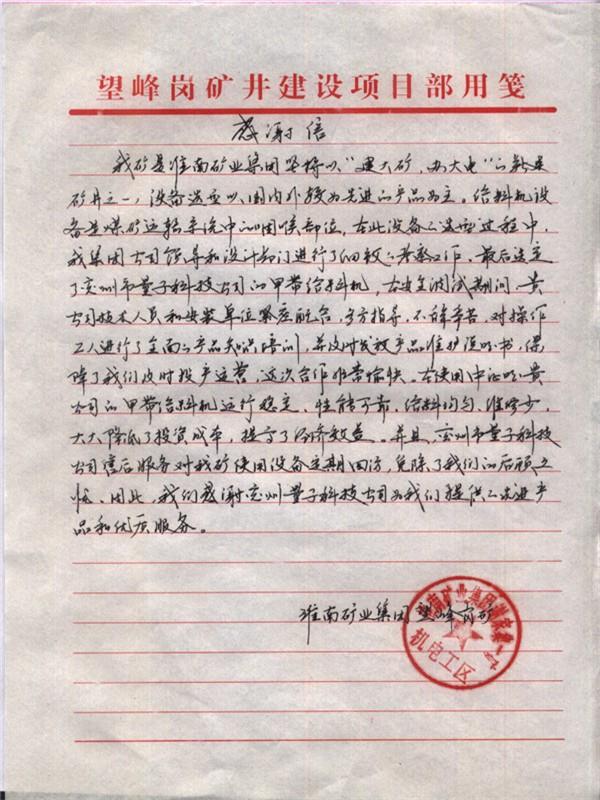 望峰岗矿井建设项目部用笺
感谢信
我矿是淮南矿业集团坚持以“建大矿，办大电”的新建
矿井之一，设备选型以国内外较为先进的产品为主。给料机设
备是煤矿运输系统中的咽喉部位，在此设备的选型过程中，
我集团公司领导和设计部门进行了细致的考察工作，最后选定
了兖州市量子科技公司的甲带给料机，在安全调试期间，贵
公司技术人员和安装单位紧密配合，多方指导，不辞辛苦，对操作
工人进行了全面的产品知识培训，并及时发放产品维护说明书，保
障了我们及时投产运营，这次合作非常愉快。在使用中证明，贵
公司的甲带给料机运行稳定，性能可靠，给料均匀，维修少，
大大降低了投资成本，提高了经济效益。并且，兖州市量子科技
公司售后服务对我矿使用设备定期回访，免除了我们的后顾之
忧。因此，我们感谢兖州量子科技公司为我们提供的先进产
品和优质服务。
淮南矿业集团望峰岗矿
机电工区